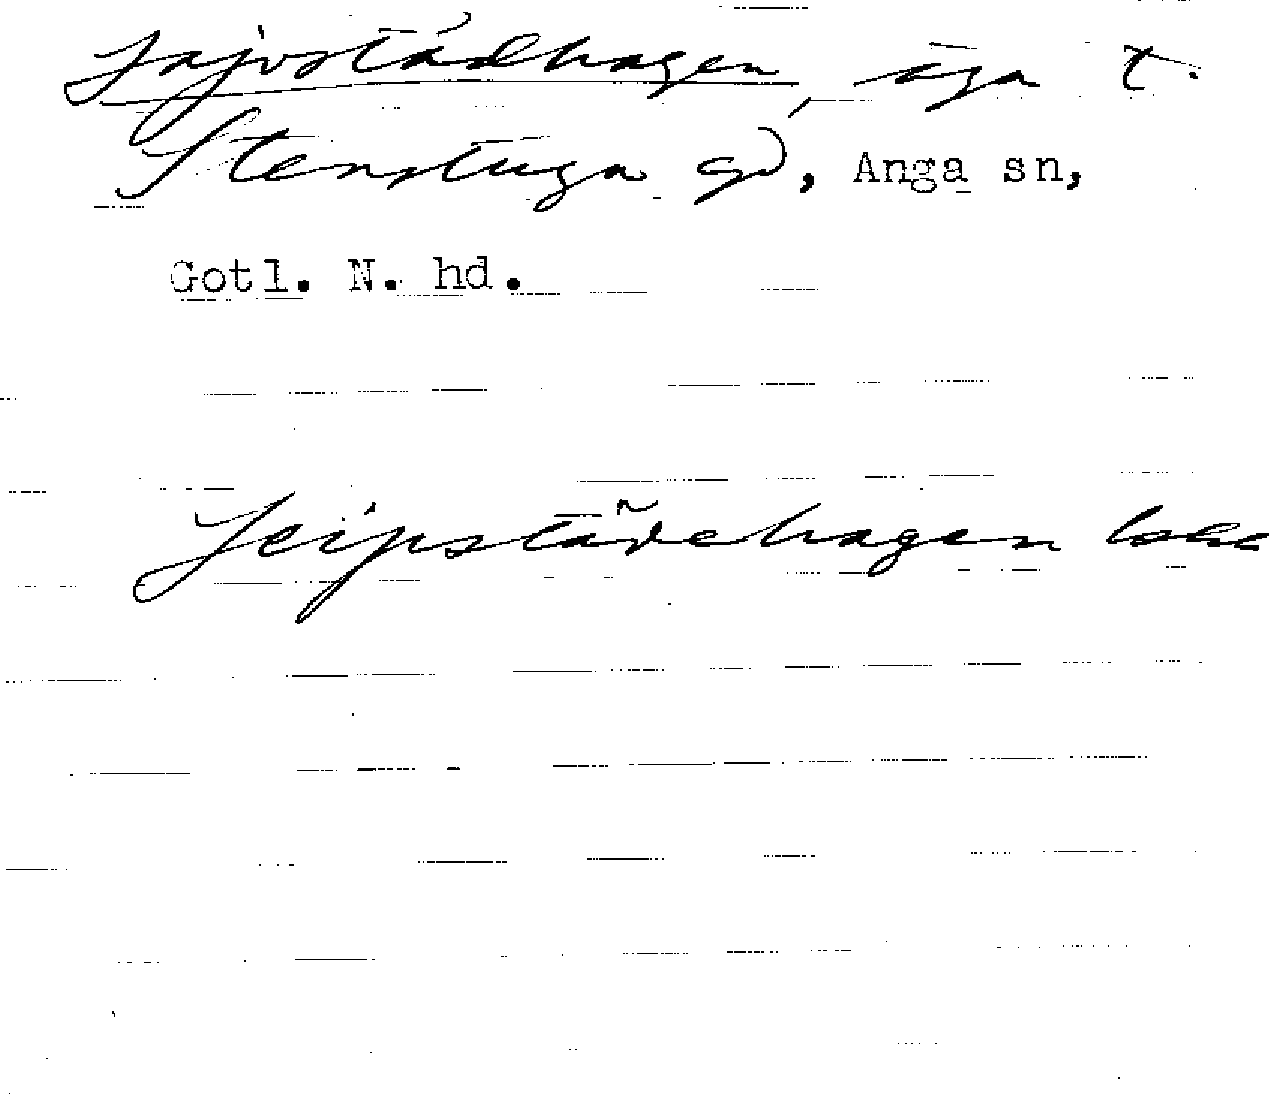 Sajvstädhagen, äga t.
Stenstuga gd, Anga sn,
Gotl. N. hd.
Seipstädehagen